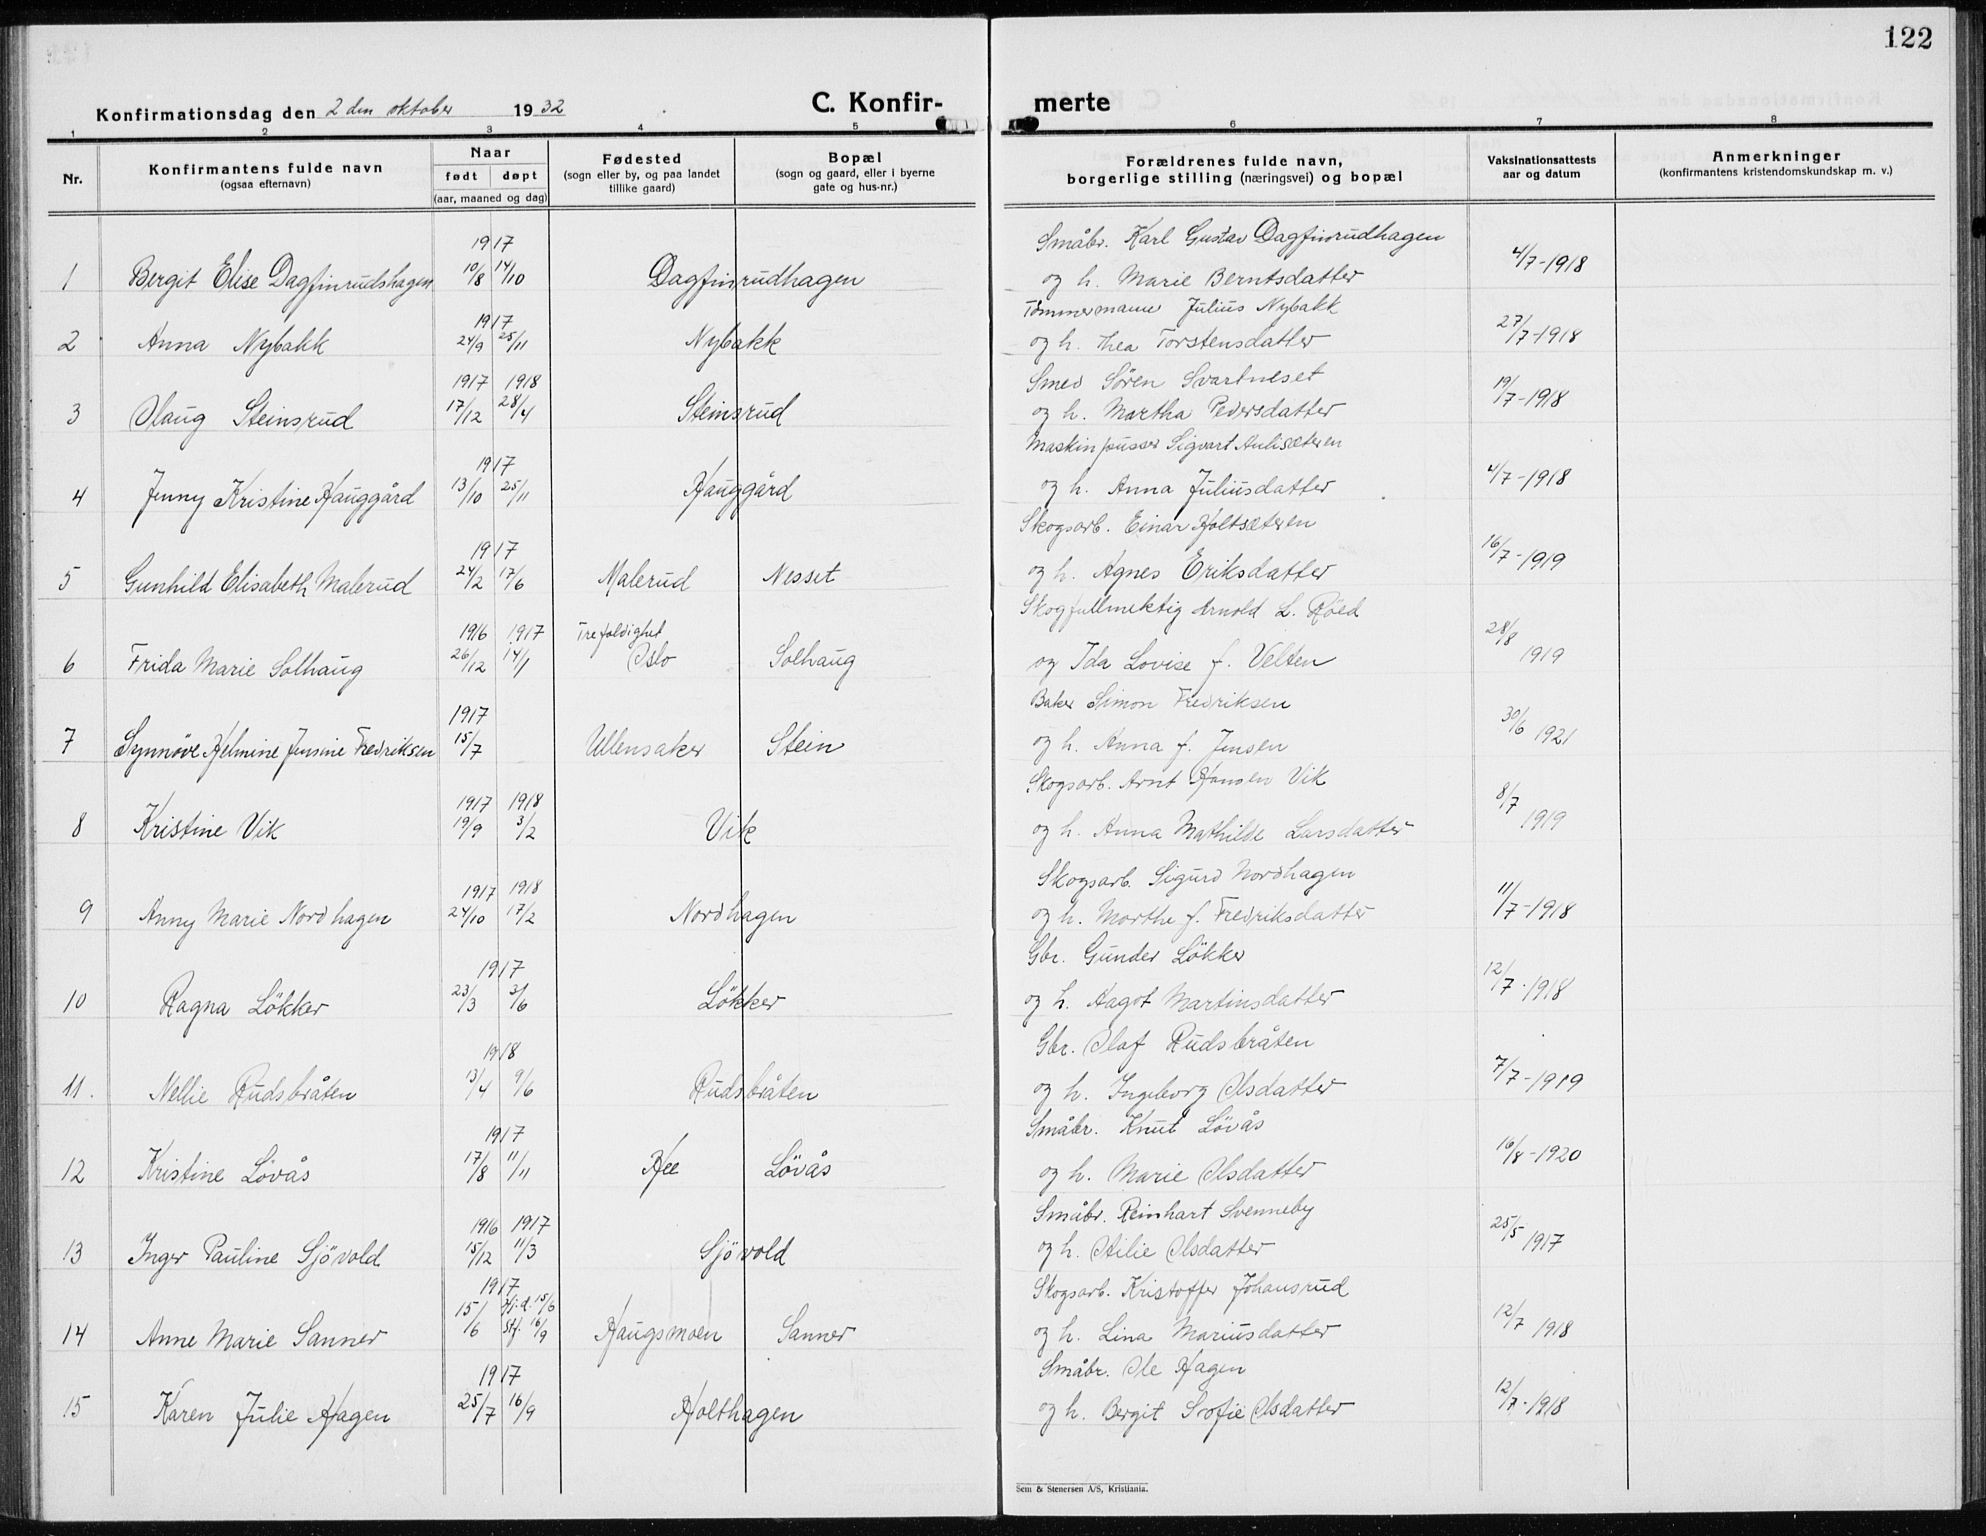 122
Konfirmationsdag den 2 den oktober 1932
C. Konfir-
merte
1 2 3 4 5 6 7 8
Nr.
Konfirmantens fulde navn
(ogsaa efternavn)
Naar
født døpt
(aar, maaned og dag)
Fødested
(sogn eller by, og paa landet
tillike gaard)
Bopæl
(sogn og gaard, eller i byerne
gate og hus-nr.)
Forældrenes fulde navn,
borgerlige stilling (næringsvei) og bopæl
Vaksinationsattests
aar og datum
Anmerkninger
(konfirmantens kristendomskundskap m. v.)
1917 Småbr. Karl Gustav Dagfinrudhagen
1 Bergit Elise Dagfinrudshagen 10/8 14/10 Dagfinrudhagen og h. Marie Berntsdatter 4/7-1918
1917 Tømmermann Julius Nybakk
2 Anna Nybakk 24/9 25/11 Nybakk og h. Thea Torstensdatter 27/7-1918
1917 1918 Smed Sören Svartneset
3 Olaug Steinsrud 17/12 28/4 Steinsrud og h. Martha Pedersdatter 19/7-1918
1917 Maskinpusser Sigvart Aulisæteren
4 Jenny Kristine Hauggård 13/10 25/11 Hauggård og h. Anna Juliusdatter 4/7-1918
1917 Skogsarb. Einar Holtsæteren
5 Gunhild Elisabeth Malerud 24/2 17/6 Malerud Nesset og h. Agnes Eriksdatter 16/7-1919
1916 1917 Trefoldighet Skogfullmektig Arnold L. Röed
6 Frida Marie Solhaug 26/12 14/1 Oslo Solhaug og Ida Lovise f. Velten 28/8 1919
1917 Baker Simon Fredriksen
7 Synnöve Helmine Jensine Fredriksen 15/7 Ullensaker Stein og h. Anna f. Jensen 30/6 1921
1917 1918 Skogsarb. Arnt Hansen Vik
8 Kristine Vik 19/9 3/2 Vik og h. Anna Mathilde Larsdatter 8/7 1919
1917 1918 Skogsarb. Sigurd Nordhagen
9 Anny Marie Nordhagen 24/10 17/2 Nordhagen og h. Marthe f. Fredriksdatter 11/7-1918
1917 Gbr. Gunder Lökker
10 Ragna Lökker 23/3 3/6 Lökker og h. Aagot Martinsdatter 12/7-1918
1918 Gbr. Olaf Rudsbråten
11. Nellie Rudsbråten 13/4 9/6 Rudsbråten og h. Ingeborg Olsdatter 7/7-1919
1917 Småbr. Knut Lövås
12 Kristine Lövås 17/8 11/11 Hee Lövås og h. Marie Olsdatter 16/8-1920
1916 1917 Småbr. Reinhart Svenneby
13 Inger Pauline Sjövold 15/12 11/3 Sjövold og h. Otilie Olsdatter 25/5 1917
1917 Skogsarb. Kristoffer Johansrud
14 Anne Marie Sanner 15/6 Hj.d. 15/6 Stf. 16/9 Haugsmoen Sanner og h. Lina Mariusdatter 12/7 1918
1917 Småbr. Ole Hagen
15 Karen Julie Hagen 25/7 16/9 Holthagen og h. Bergit Sofie Olsdatter 12/7-1918
Sem & Stenersen A/S, Kristiania.